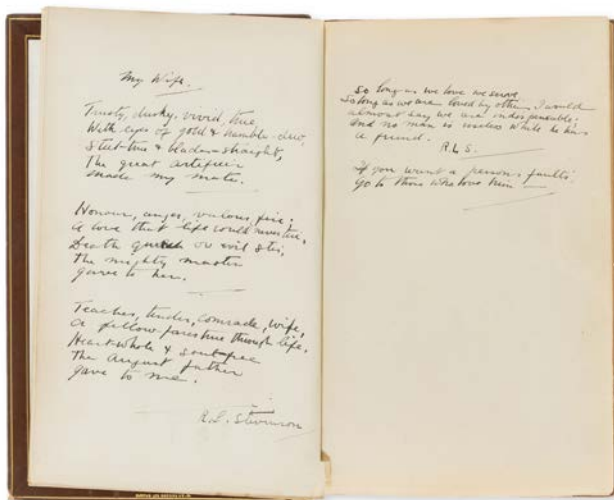 My Wife.
Trusty, dusky, vivid, true,
With eyes of gold & bramble-dew,
Steel-true & blade-straight,
The great artificer
made my mate.
Honour, anger, valour, fire;
A love that life could never tire,
Death quench or evil stir,
The mighty master
gave to her.
Teacher, tender, comrade, wife,
A fellow-farer true through life,
Heart-whole & soul-free
The August father
gave to me.
R.L. Stevenson
So long as we love we serve
So long as we are loved by others I would
almost say we are indispensable.
And no man is useless while he has
a friend.
R L S.
If you want a person's faults
Go to those who love him